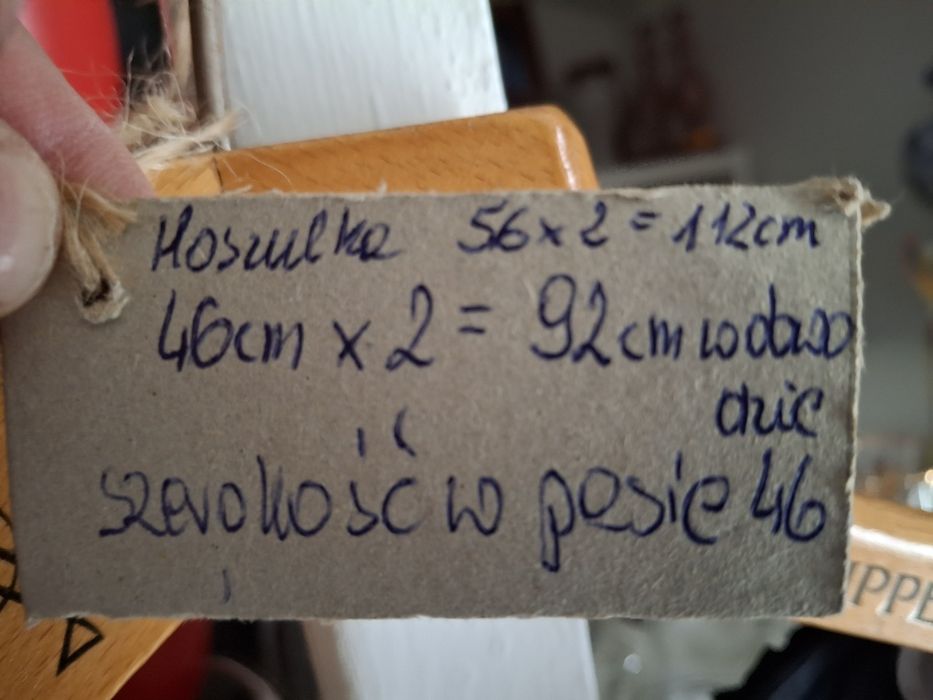 Koszulka 56 x 2 = 112cm
46cm x 2 = 92cm w obwo
dzie
szerokość w pasie 46
IPPE